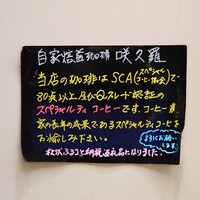 自家焙煎珈琲 咲久羅
当店の珈琲はSCA(スペシャルティコーヒー協会)で
80点以上及びQグレード認証の
スペシャルティコーヒーです。コーヒー農
家の長年の成果であるスペシャルティコーヒーを
お愉しみ下さい。
よろしくお願いします
秩父ふるさと納税返礼品になりました。